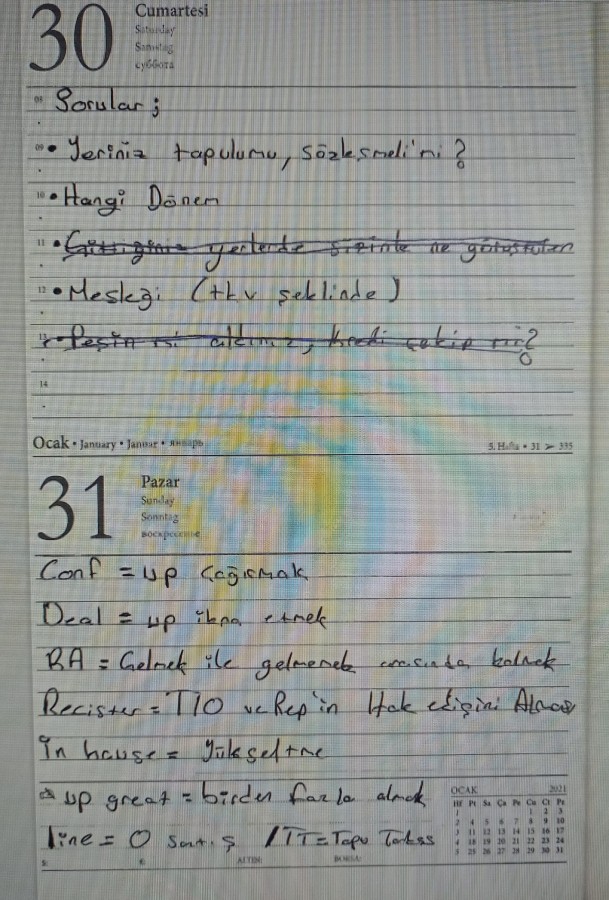 30 Cumartesi
Saturday
Samstag
суббота
08 Sorular ;
09 • Yeriniz tapulumu, sözleşmeli'mi ?
10 • Hangi Dönem
11 • Gittiğiniz yerlerde sizinle ne
12 • Mesleği (tkv şeklinde)
13 • Peşin mi aldınız, kredi çekip mi?
14
Ocak • January • Januar • январь 5. Hafta • 31 ➢ 335
31 Pazar
Sunday
Sonntag
воскресенье
Conf = up Çağırmak
Deal = up ikna etmek
BA = Gelmek ile gelmemek arasında kalmak
Recister = TIO ve Rep'in Hak edişini Alması
in house = Yükseltme
up great = birden fazla almak
line = 0 satış / TT = Tapu
OCAK 2021
Hf Pt Sa Ça Pe Cu Ct Pz
1 1 2 3
2 4 5 6 7 8 9 10
3 11 12 13 14 15 16 17
4 18 19 20 21 22 23 24
5 25 26 27 28 29 30 31
$: €: ALTIN: BORSA: